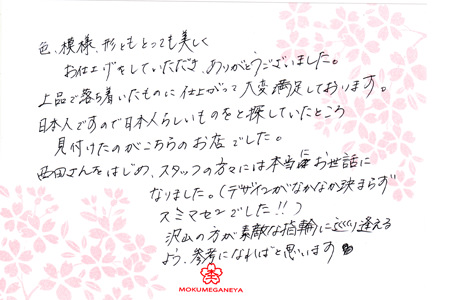 色、模様、形ともとっても美しく
お仕上げをしていただき、ありがとうございました。
上品で落ち着いたものに仕上がって大変満足しております。
日本人ですので日本人らしいものをと探していたところ
見付けたのがこちらのお店でした。
西田さんをはじめ、スタッフの方々には本当にお世話に
なりました。(デザインがなかなか決まらず
スミマセンでした!!)
沢山の方が素敵な指輪にめぐり逢える
よう、参考になればと思います
MOKUMEGANEYA